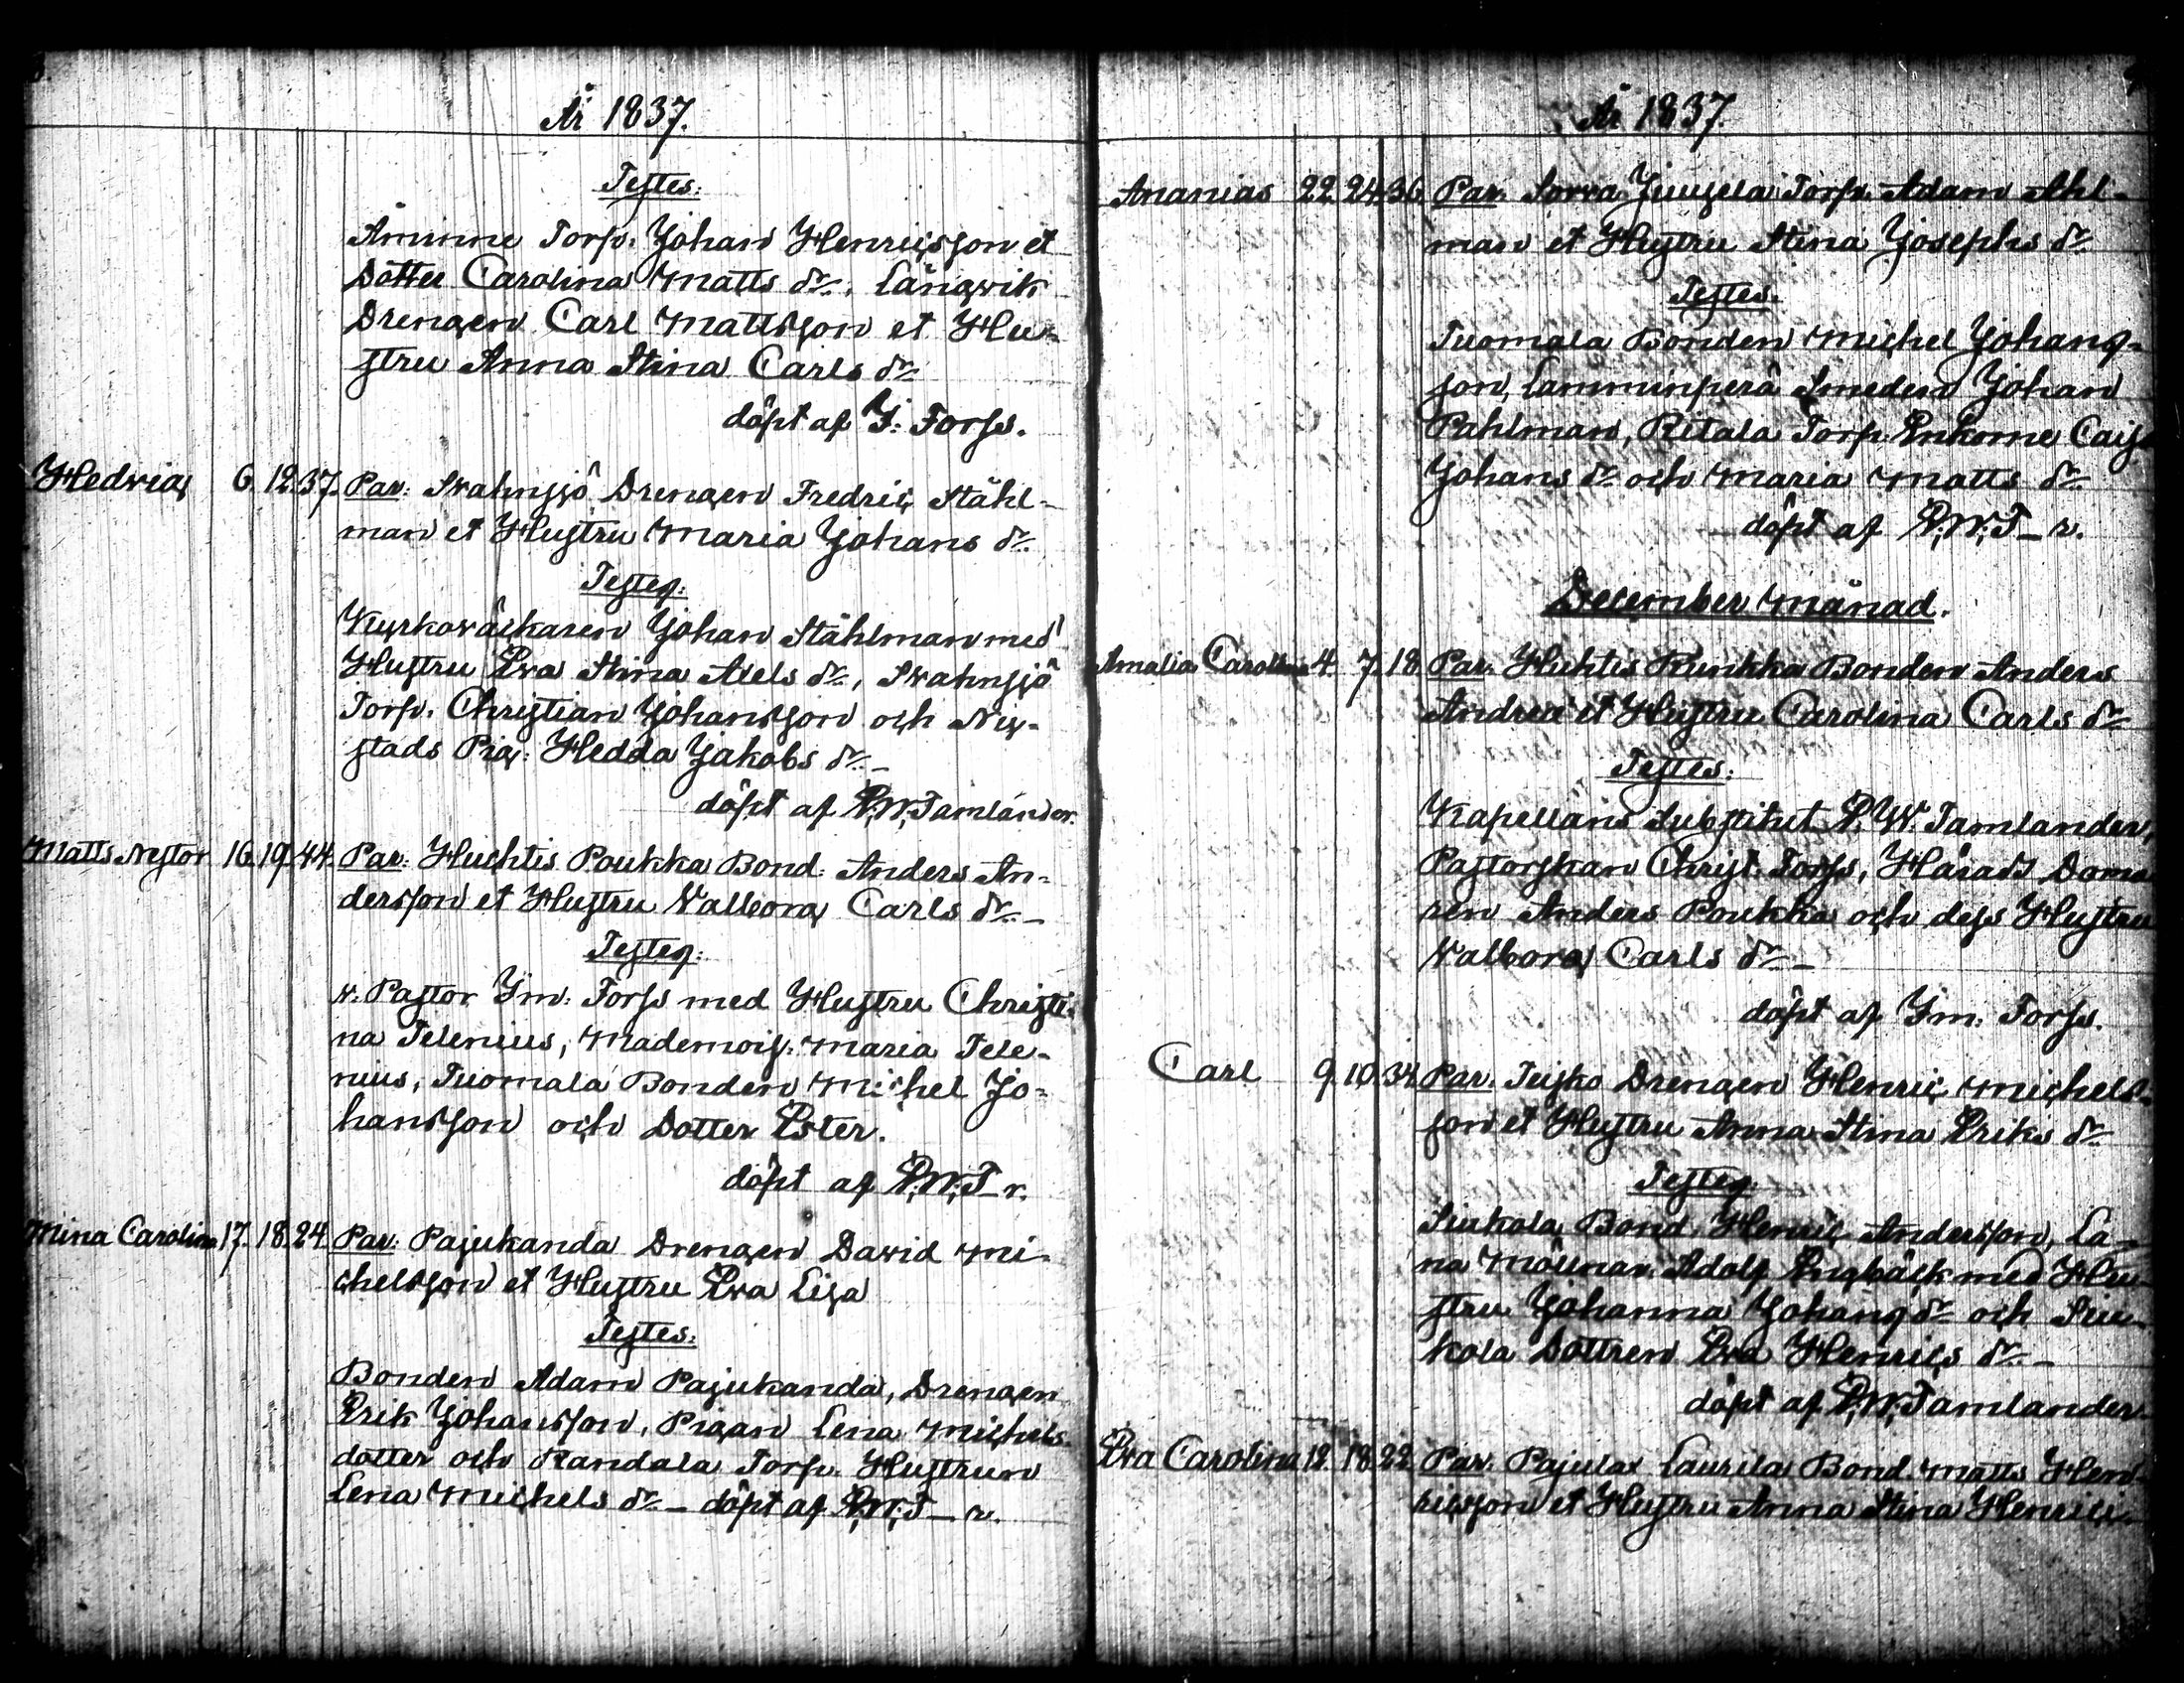 År 1837.
Testes:
Åminne Torp. Johan Henricsson et
Dotter Carolina Matts dr., Långwik
Drengen Carl Mattsson et Hu-
stru Anna Stina Carls dr
döpt af I. Forss.
Hedvig 6. 12. 37. Par: Svahnsjö Drengen Fredric Ståhl-
man et Hustru Maria Johans dr.
Testes:
Kyrkoväckaren Johan Ståhlman med
Hustru Eva Stina Axels dr., Svahnsjö
Torp. Christian Johansson och Ny-
stads Pig: Hedda Jakobs dr.-
döpt af E.W. Tamlander.
Matts Nestor 16. 19. 44. Par: Huchtis Poukka Bond: Anders An-
dersson et Hustru Valborg Carls dr.-
Testes:
V. Pastor Im: Forss med Hustru Christi-
na Telenius, Mademois: Maria Tele-
nius, Tuomala Bonden Michel Jo-
hansson och Dotter Ester.
döpt af E.W.T-r.
Mina Carolina 17. 18. 24. Par: Pajukanda Drengen David Mi-
chelsson et Hustru Eva Lisa
Testes:
Bonden Adam Pajukanda, Drengen
Erik Johansson, Pigan Lena Michels-
dotter och Randala Torp. Hustrun
Lena Michels dr- döpt af E.W.T-r.
År 1837.
Ananias 22. 24. 36. Par. Sorva Torp. Adam Ahl-
man et Hustru Stina Josephs dr
Testes.
Tuomala Bonden Michel Johans-
son, Lamminperä Smeden Johan
Pahlman, Ritala Torp. Enkorne Cajsa
Johans dr och Maria Matts dr
döpt af E.W.T-r.
December Månad.
Amalia Carolina 4. 7. 18. Par. Huhtis Bonden Anders
Andreæ et Hustru Carolina Carls dr
Testes:
Kapellans Substitut E.W. Tamlander,
Pastorskan Christ: Forss, Härads Doma-
ren Anders Poukka och dess Hustru
Valborg Carls dr-
döpt af Im: Forss.
Carl 9. 10. 34. Par. Teisko Drengen Henric Michels-
son et Hustru Anna Stina Eriks dr
Testes:
Siukola Bond. Henric Andersson, La-
na Möllnar. Adolf Engbäck med Hu-
stru Johanna Johans dr och Siu-
kola Dottren Eva Henrics dr.-
döpt af E.W. Tamlander.
Eva Carolina 12. 18. 22. Par. Pajula Laurila Bond. Matts Hen-
ricsson et Hustru Anna Stina Henrics-